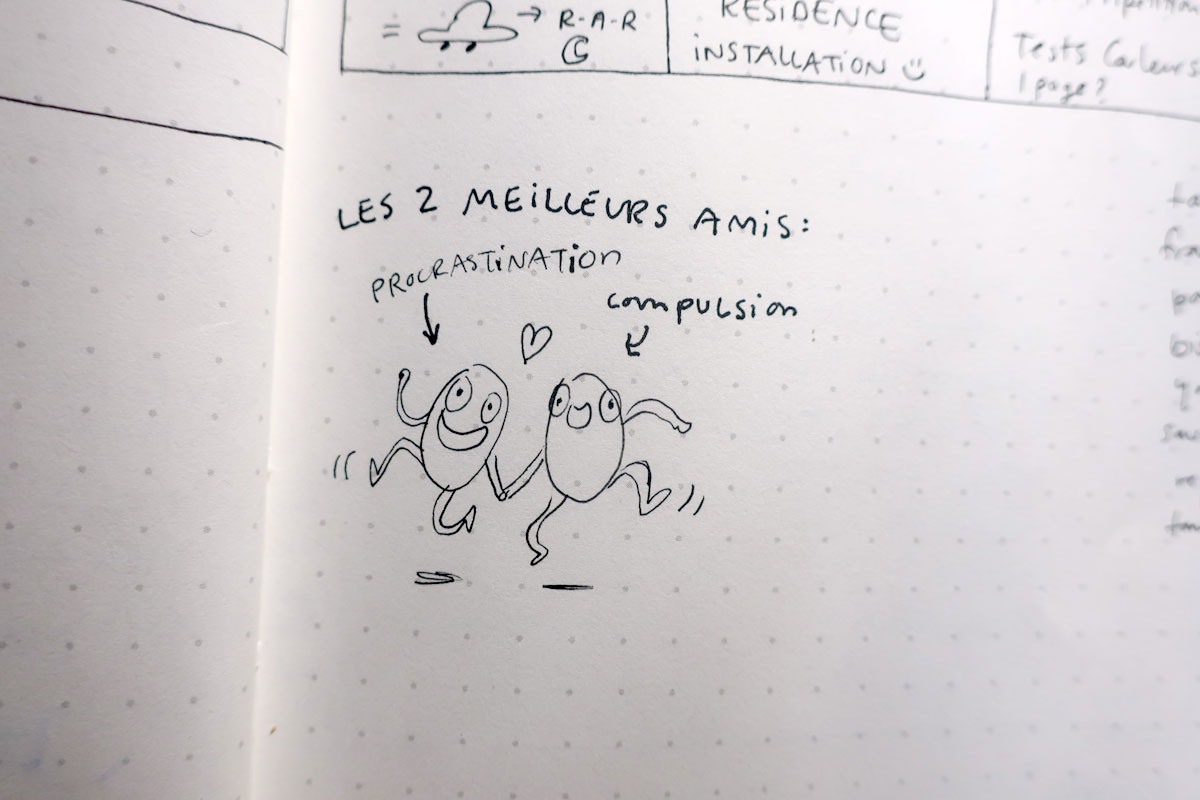 = → R-A-R
RESIDENCE
INSTALLATION
Tests Couleurs
1 page?
LES 2 MEILLEURS AMIS:
PROCRASTINATION
COMPULSION